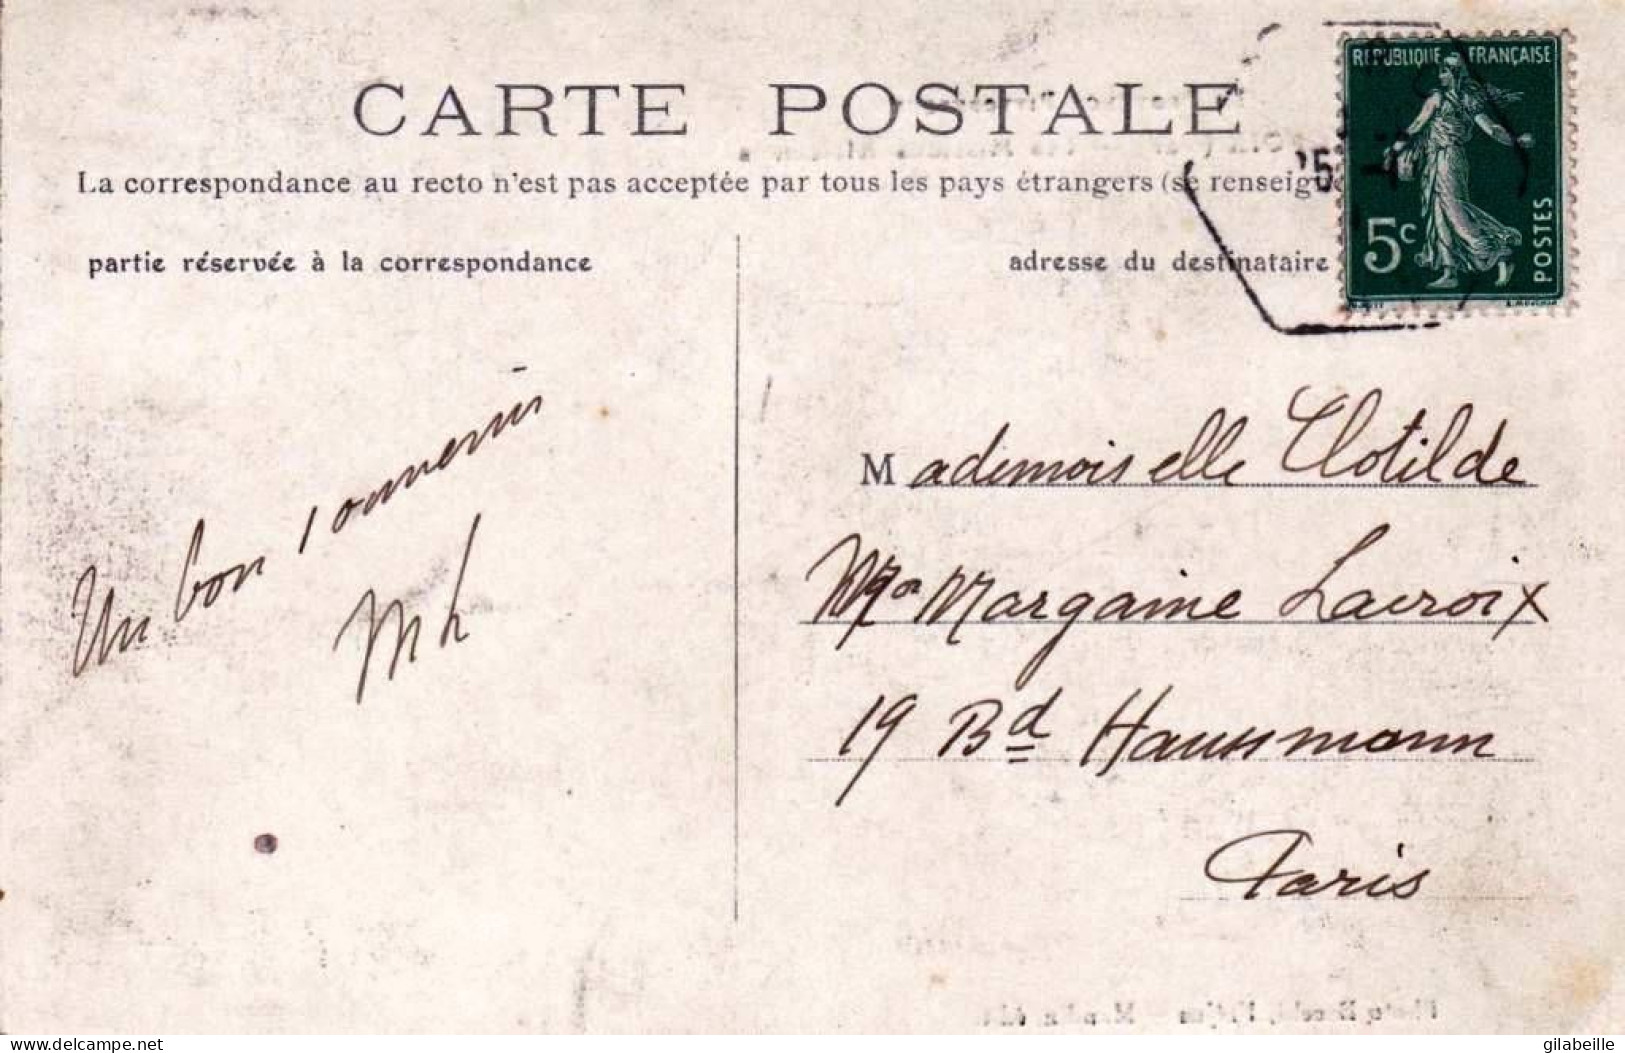 CARTE POSTALE
La correspondance au recto n'est pas acceptée par tous les pays étrangers (se renseign
partie réservée à la correspondance
adresse du destinataire
REPUBLIQUE FRANÇAISE
5c
POSTES
Un bon souvenir
ML
Mademoiselle Clotilde
Mon Margaine Lacroix
19 Bd Haussmann
Paris
delcampe.net
gilabeille